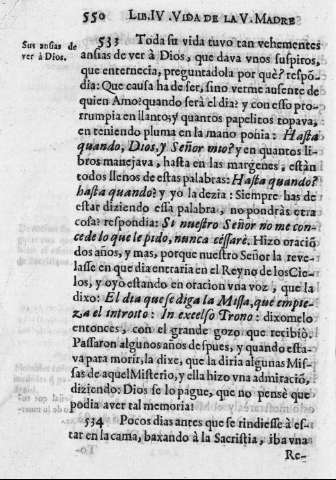 550 LIB. IV. VIDA DE LA V. MADRE
Sus ansias de
ver à Dios.
533 Toda su vida tuvo tan vehementes
ansias de ver à Dios, que dava vnos suspiros,
que enternecia, preguntadola por què? respõ-
dia: Que causa ha de ser, sino verme ausente de
quien Amo? quando serà el dia? y con esso pro-
rrumpia en llantos, y quantos papelitos topava,
en teniendo pluma en la mano ponia: Hasta
quando, Dios, y Señor mio? y en quantos li-
bros manejava, hasta en las margenes, estàn
todos llenos de estas palabras: Hasta quando?
hasta quando? y yo la dezia: Siempre has de
estar diziendo essa palabra, no pondràs otra
cosa? respondia: Si nuestro Señor no me con-
cede lo que le pido, nunca cessarè. Hizo oraciõ
dos años, y mas, porque nuestro Señor la reve-
lasse en que dia entraria en el Reyno de los Cie-
los, y oyò estando en oracion vna voz, que la
dixo: El dia que se diga la Missa, que empie-
za el introito: In excelso Trono: dixomelo
entonces, con el grande gozo que recibiò.
Passaron algunos años despues, y quando esta-
va para morir, la dixe, que la diria algunas Mis-
sas de aquel Misterio, y ella hizo vna admiraciõ,
diziendo: Dios se lo pague, que no pensè que
podia aver tal memoria!
534 Pocos dias antes que se rindiesse à es-
tar en la cama, baxando à la Sacristia, iba vna
Re-